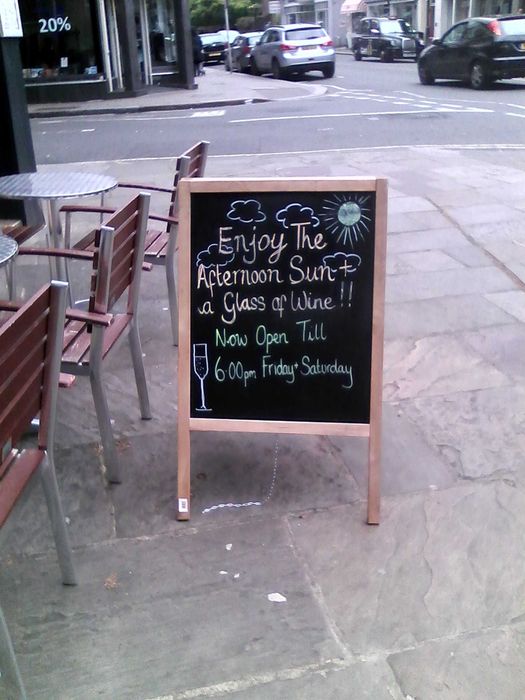 20%
Enjoy The
Afternoon Sun +
a Glass of Wine !!
Now Open Till
6.00pm Friday + Saturday